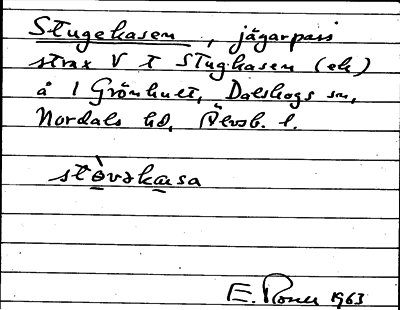 Stugekasen, jägarpass
strax V t Stugkasen (ek)
å 1 Grönhult, Dalskogs sn,
Nordals hd, Älvsb. l.
stòvəkasa
E. 1963